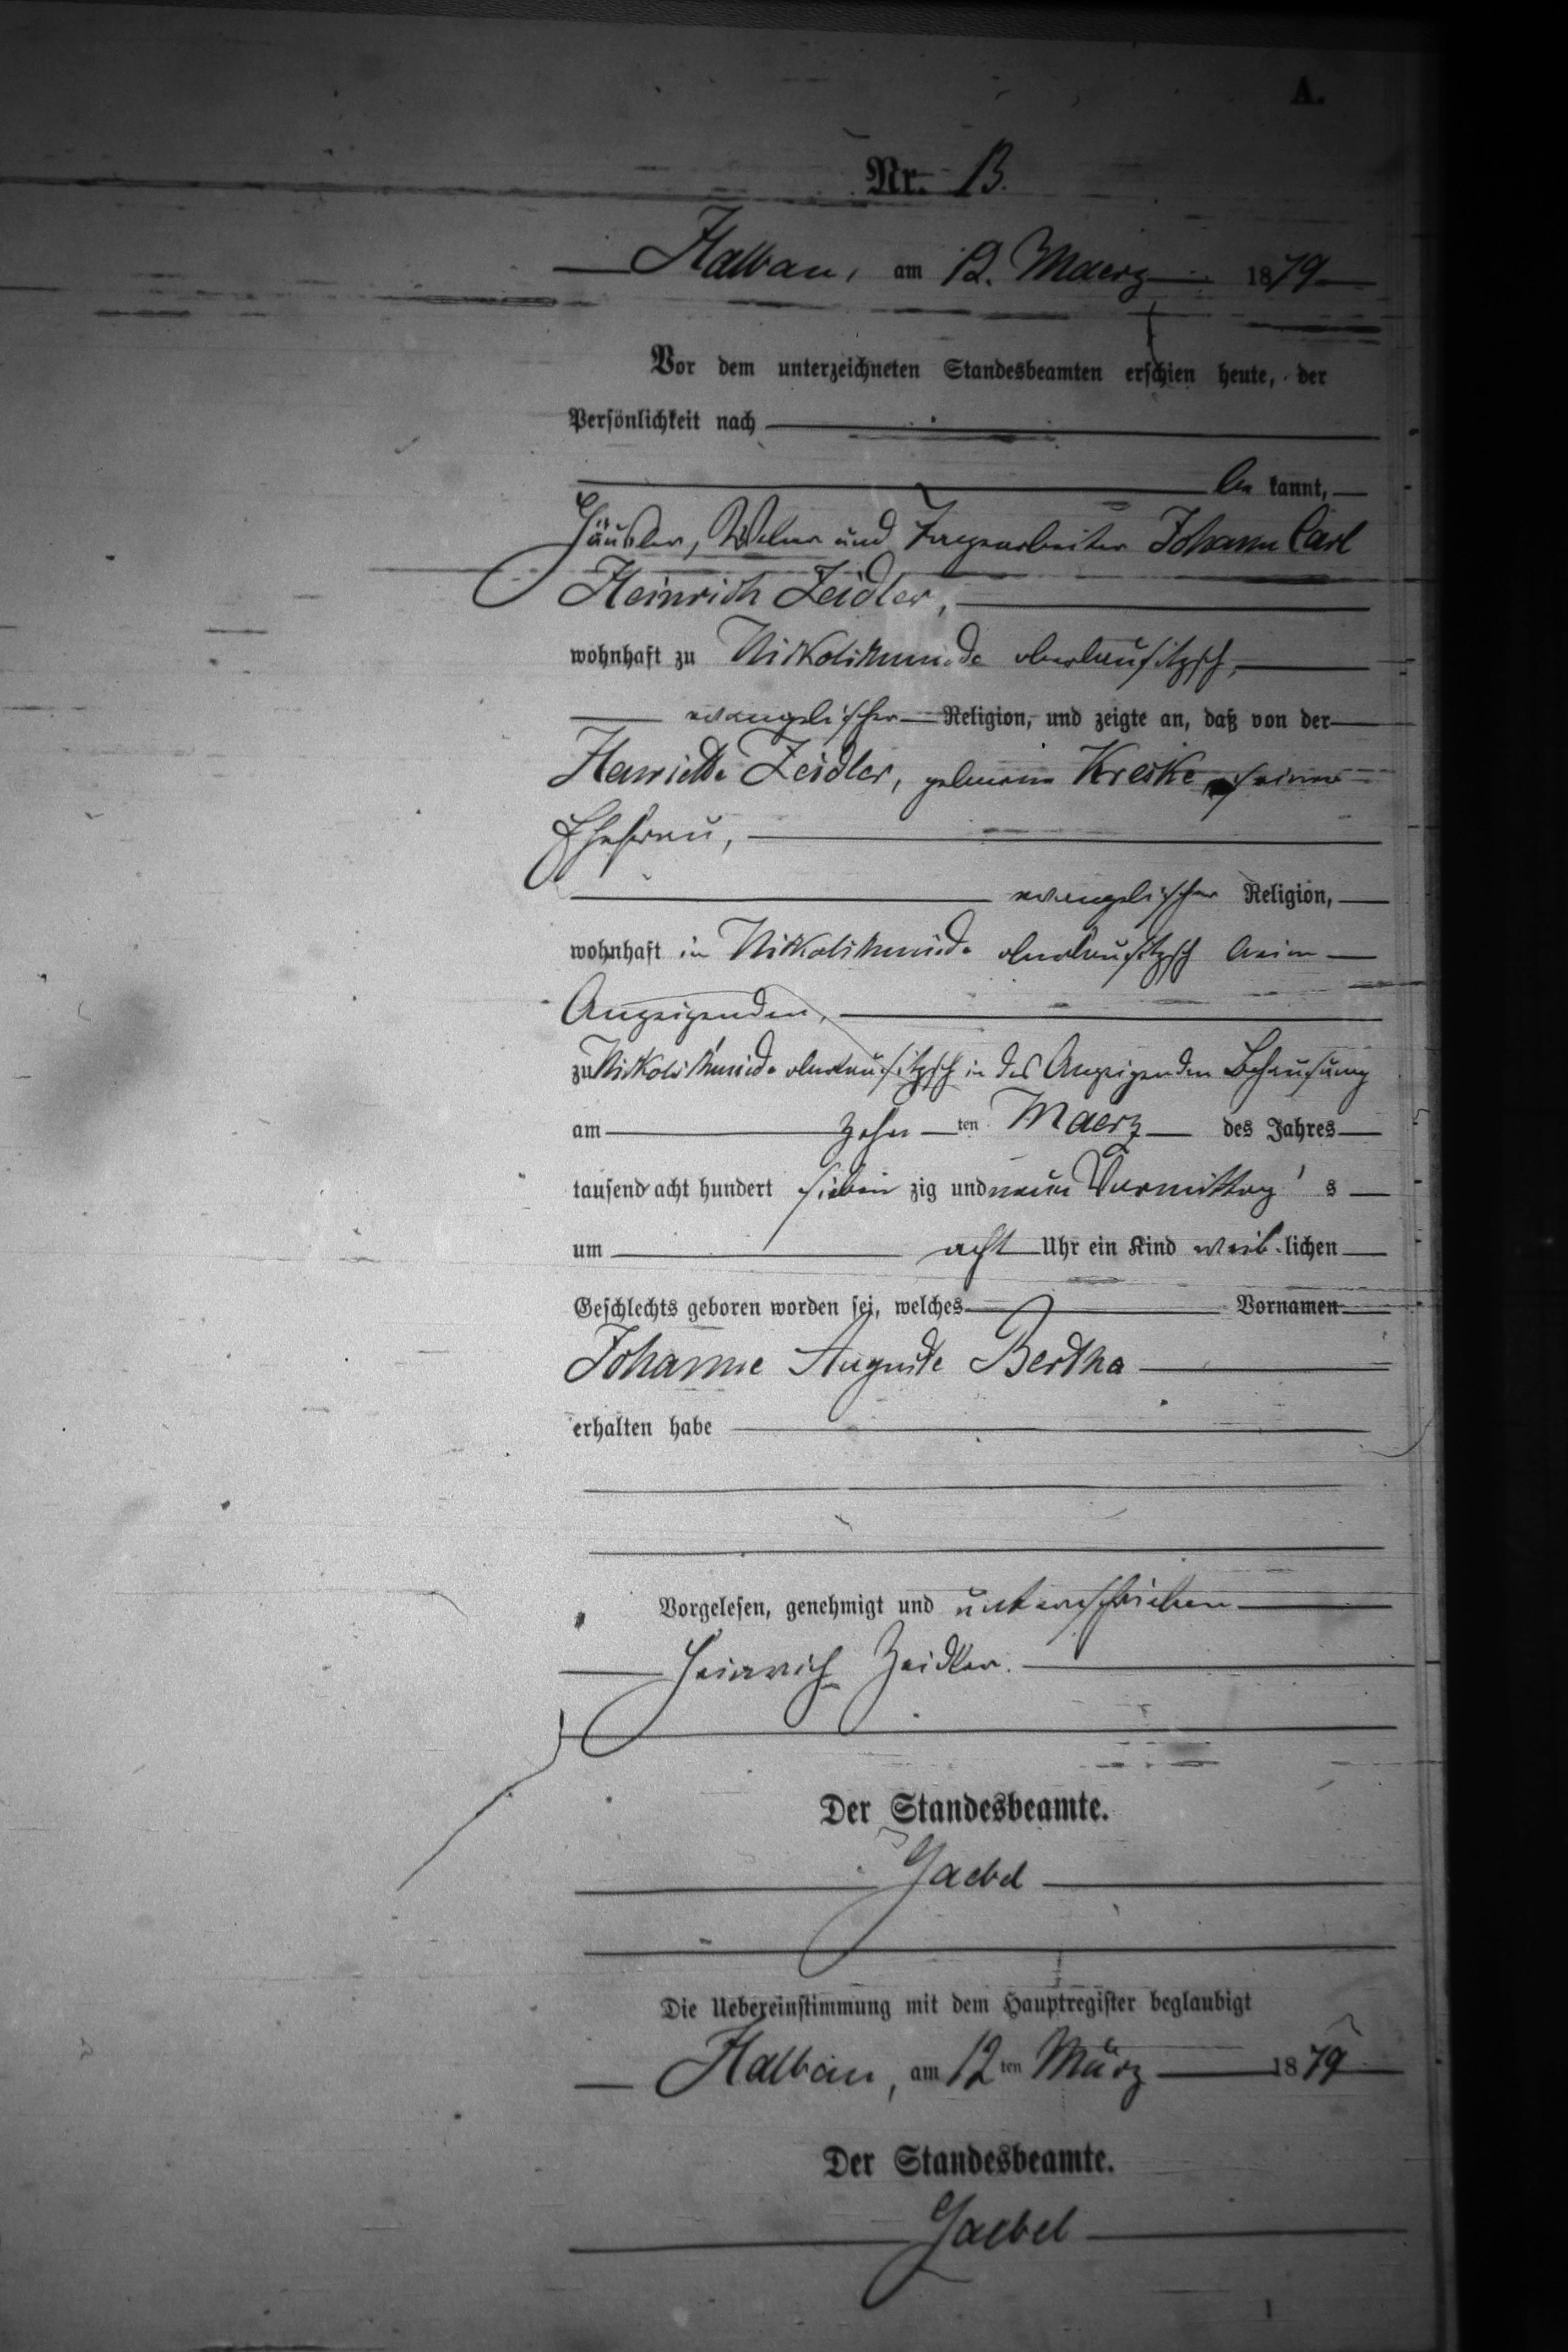 A.
Nr. 13.
Halbau, am 12. Maerz 1879
Vor dem unterzeichneten Standesbeamten erschien heute, der
Persönlichkeit nach
be kannt,
Häusler, Weber und Tagearbeiter Johann Carl
Heinrich Zeidler,
wohnhaft zu Nikolischmiede oberlausitzsch,
evangelischer Religion, und zeigte an, daß von der
Henriette Zeidler, geborene Kreske, seiner
Ehefrau,
evangelischer Religion,
wohnhaft in Nikolischmiede oberlausitzsch beim
Anzeigenden,
zu Nikolischmiede oberlausitzsch in des Anzeigenden Behausung
am zehn ten Maerz des Jahres
tausend acht hundert sieben zig und neun Vormittag s
um acht Uhr ein Kind weib lichen
Geschlechts geboren worden sei, welches Vornamen
Johanne Auguste Bertha
erhalten habe
Vorgelesen, genehmigt und unterschrieben
Heinrich Zeidler.
Der Standesbeamte.
Gaebel
Die Uebereinstimmung mit dem Hauptregister beglaubigt
Halbau, am 12 ten März 1879
Der Standesbeamte.
Gaebel